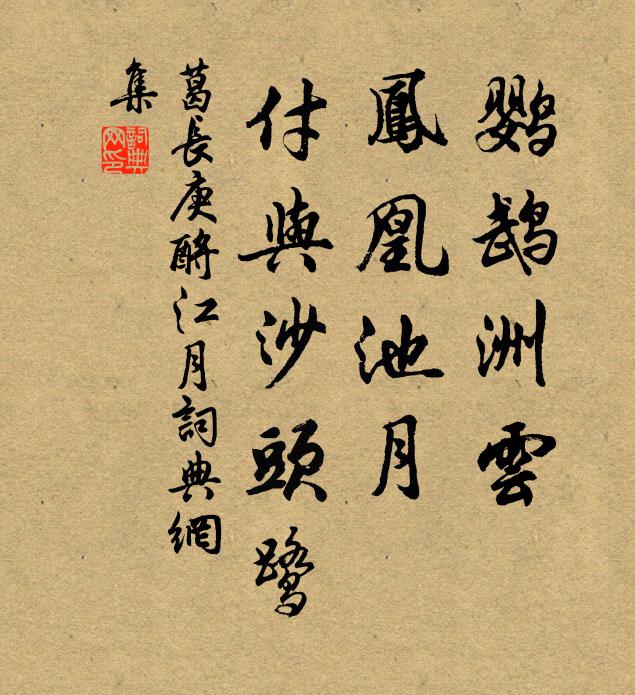 鸚鵡洲雲
鳳凰池月
付與沙頭鷺
葛長庚酹江月詞典網
集
詞典
网印